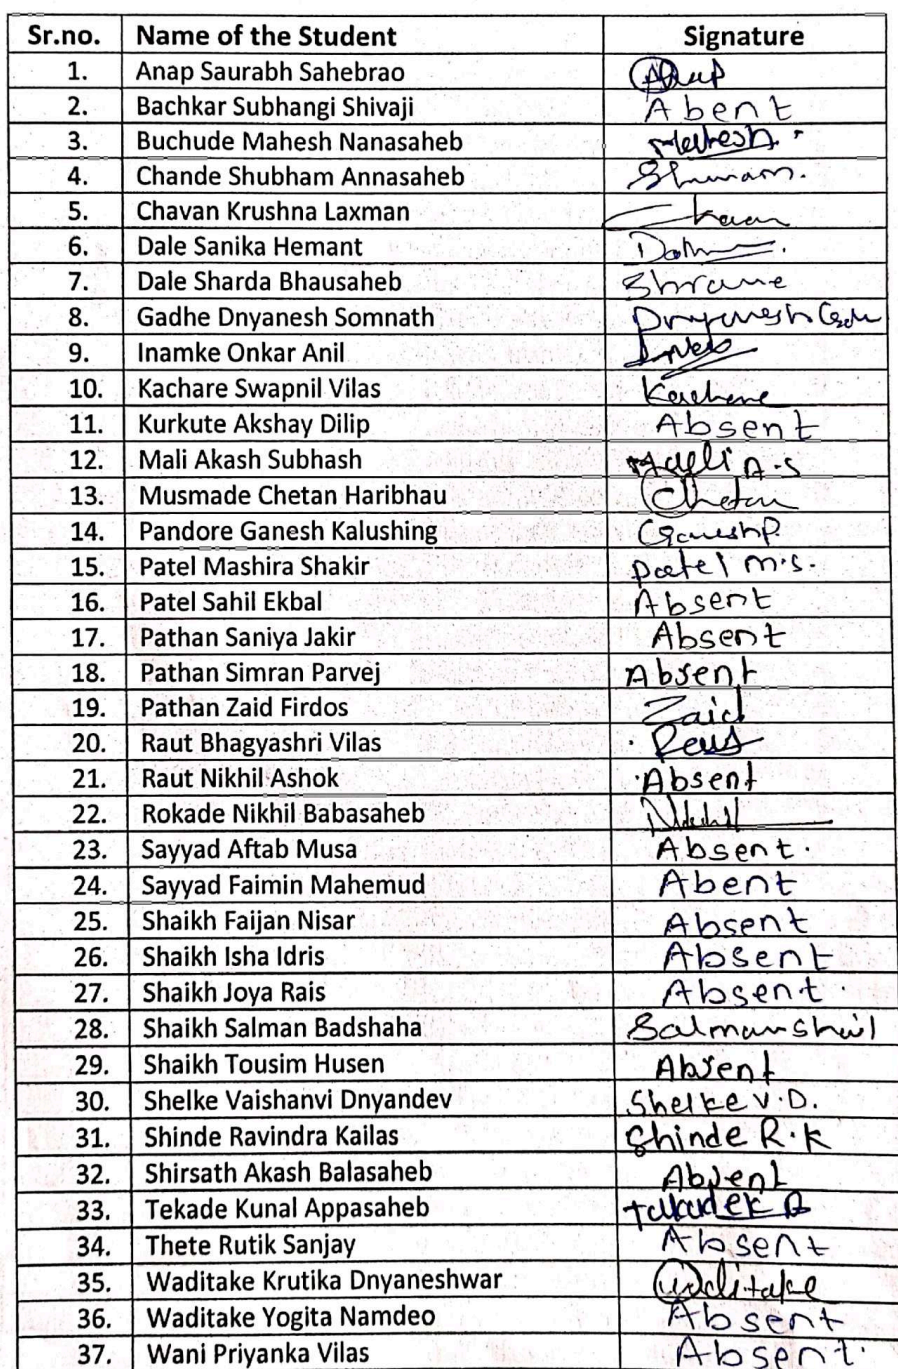 Sr.no. Name of the Student Signature
1. Anap Saurabh Sahebrao Anap
2. Bachkar Subhangi Shivaji Abent
3. Buchude Mahesh Nanasaheb Mahesh
4. Chande Shubham Annasaheb
5. Chavan Krushna Laxman
6. Dale Sanika Hemant
7. Dale Sharda Bhausaheb
8. Gadhe Dnyanesh Somnath
9. Inamke Onkar Anil
10. Kachare Swapnil Vilas
11. Kurkute Akshay Dilip Absent
12. Mali Akash Subhash A.S
13. Musmade Chetan Haribhau Chetan
14. Pandore Ganesh Kalushing
15. Patel Mashira Shakir Patel M.S.
16. Patel Sahil Ekbal Absent
17. Pathan Saniya Jakir Absent
18. Pathan Simran Parvej Absent
19. Pathan Zaid Firdos Zaid
20. Raut Bhagyashri Vilas
21. Raut Nikhil Ashok Absent
22. Rokade Nikhil Babasaheb
23. Sayyad Aftab Musa Absent.
24. Sayyad Faimin Mahemud Abent
25. Shaikh Faijan Nisar Absent
26. Shaikh Isha Idris Absent
27. Shaikh Joya Rais Absent.
28. Shaikh Salman Badshaha Salman
29. Shaikh Tousim Husen Absent
30. Shelke Vaishanvi Dnyandev Shelke V.D.
31. Shinde Ravindra Kailas Shinde R.K
32. Shirsath Akash Balasaheb Absent
33. Tekade Kunal Appasaheb
34. Thete Rutik Sanjay Absent
35. Waditake Krutika Dnyaneshwar Waditake
36. Waditake Yogita Namdeo Absent
37. Wani Priyanka Vilas Absent.